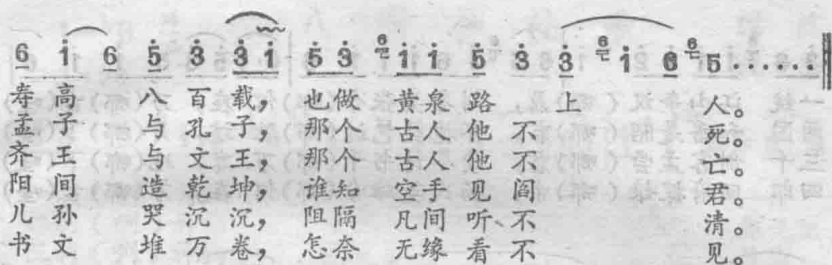 6 i 6 5 3 3 i 5 3 6 i i 5 3 3 6 i 6 6 5 ......
寿高 八百载，也做 黄泉路 上 人。
孟子 与孔子，那个 古人他不 死。
齐王 与文王，那个 古人他不 亡。
阳间 造乾坤，谁知 空手见阎 君。
儿孙 哭沉沉，阻隔 凡间听不 清。
书文 堆万卷，怎奈 无缘看不 见。